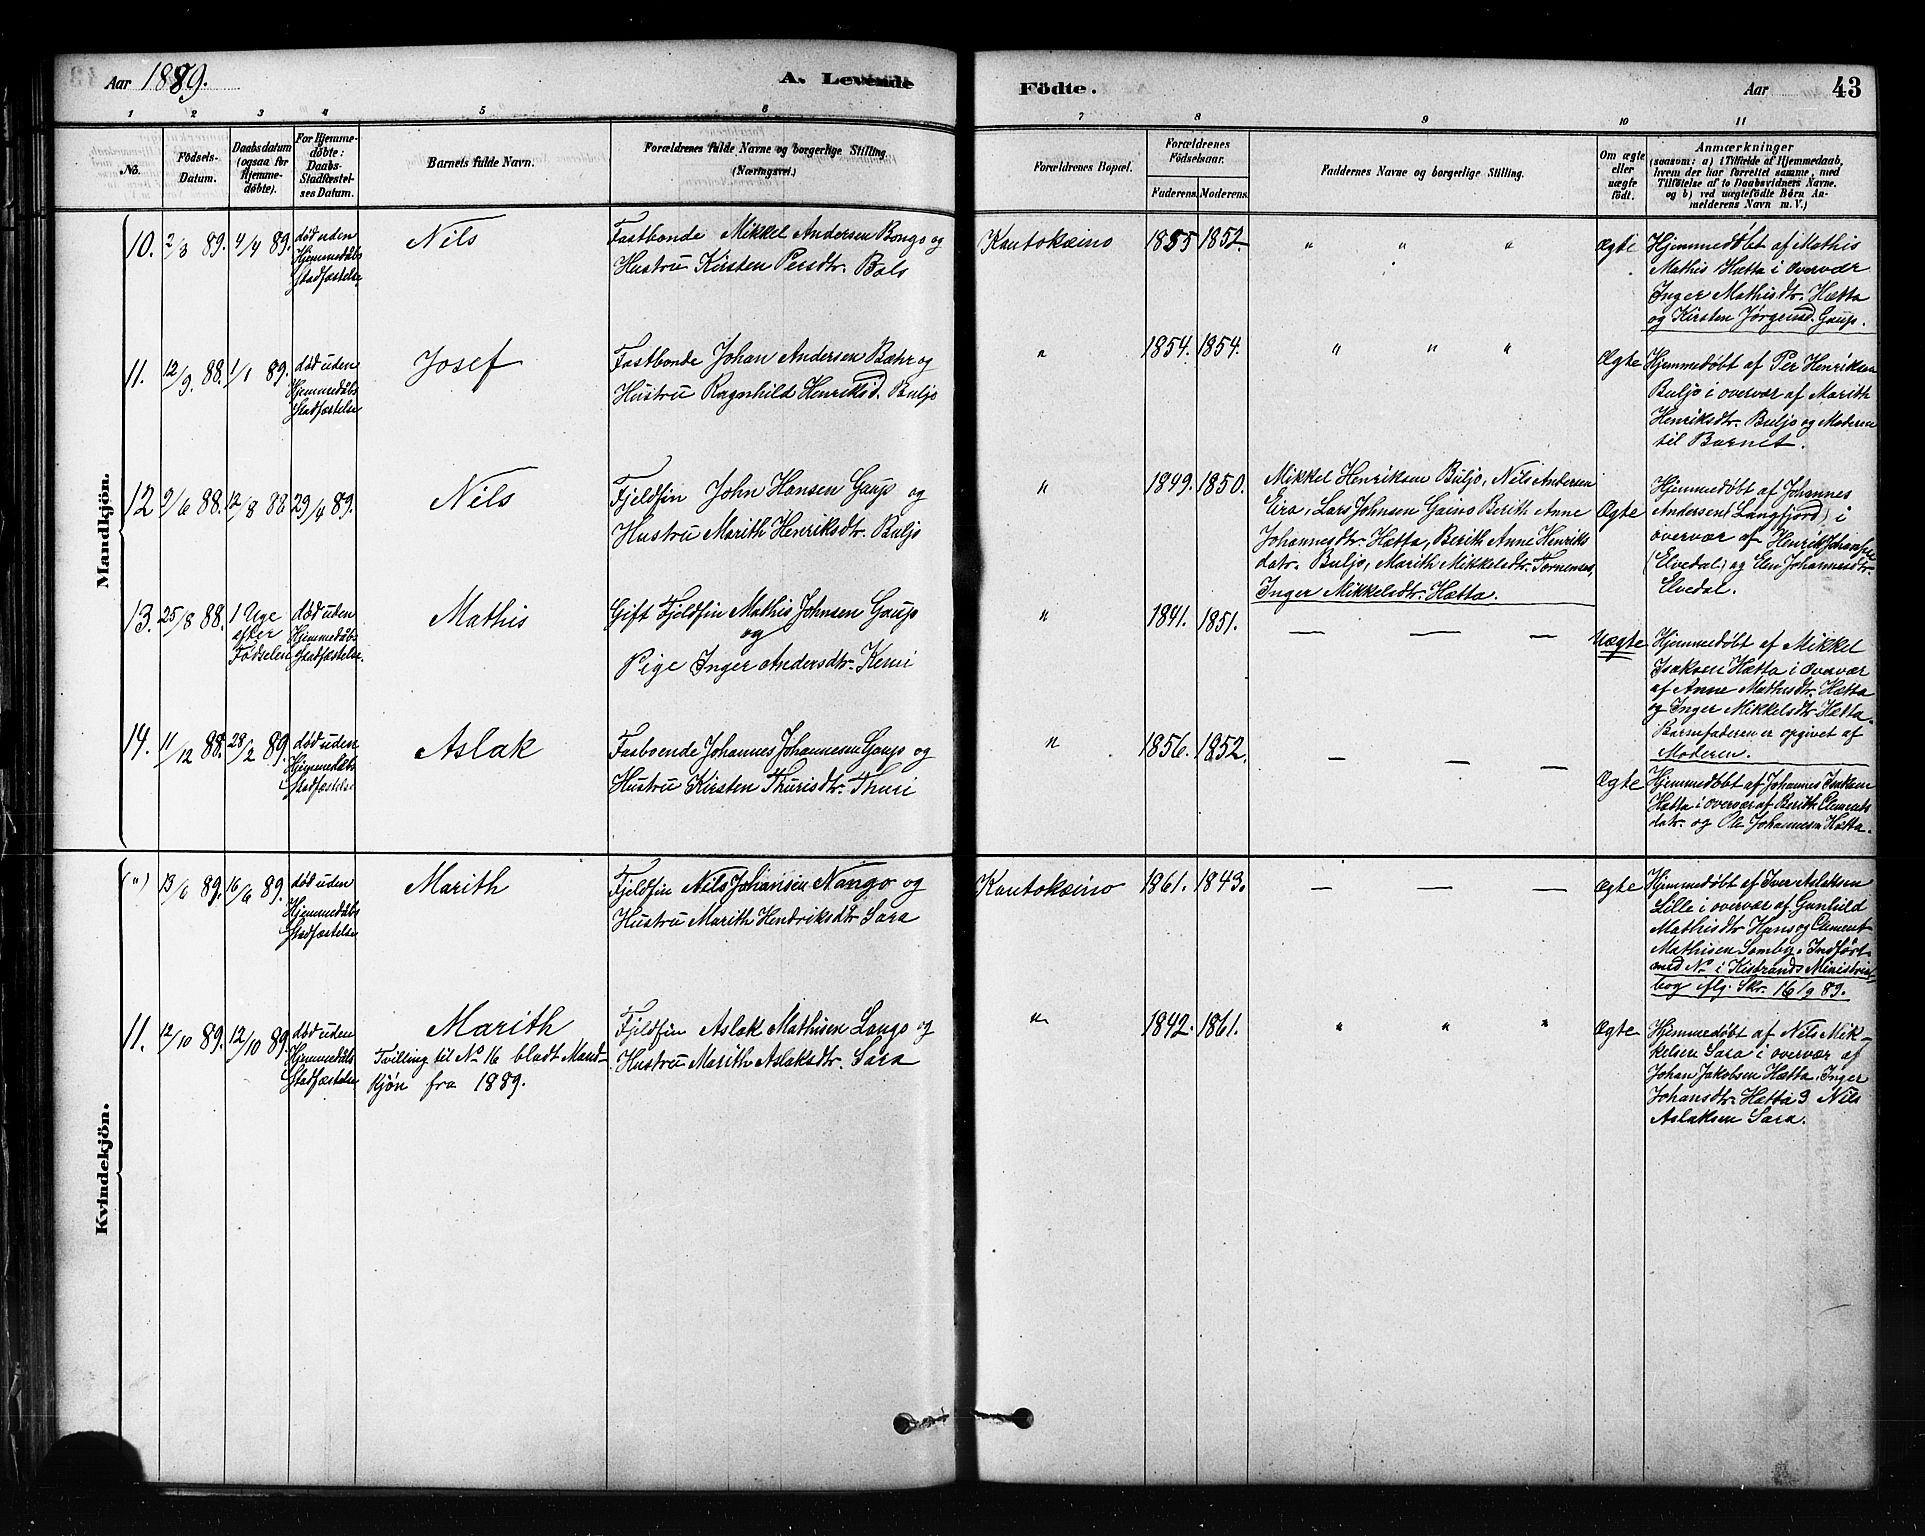 Aar 1889.
A. Levende
Födte.
Aar
43
1 2 3 4 5 6 7 8 9 10 11
No.
Födsels-
Datum.
Daabsdatum
(ogsaa for
Hjemme-
döbte).
For Hjemme-
döbte:
Daabs-
Stadfæstel-
ses Datum.
Barnets fulde Navn.
Forældrenes fulde Navne og borgerlige Stilling
(Næringsvei.)
Forældrenes Bopæl.
Forældrenes
Födselsaar.
Faderens. Moderens.
Faddernes Navne og borgerlige Stilling.
Om ægte
eller
uægte
födt.
Anmærkninger
(saasom: a) i Tilfælde af Hjemmedaab,
hvem der har forrettet samme, med
Tilföielse af to Daabsvidners Navne.
og b) ved uægtefödte Börn An-
melderens Navn m. V.)
Mandkjön.
10. 2/3 89. 4/4 89.
død uden
Hjemmedåbs
Stadfæstelse
Nils
Fastbonde Mikkel Andersen Bongo og
Hustru Kirsten Persdtr. Bals
Kautokæino
1855 1852
" " "
Ægte
Hjemmedøbt af Mathis
Mathis Hætta i overvær
Inger Mathisdtr. Hætta
og Kirsten Jørgensd. Gaup.
11. 12/9 88. 1/1 89.
død uden
Hjemmedåbs
Stadfæstelse
Josef
Fastbonde Johan Andersen Bæhr og
Hustru Ragnhild Henriksd. Buljo
"
1854. 1854.
" " "
Ægte
Hjemmedøbt af Per Henriksen
Buljo i overvær af Marith
Henriksdtr. Buljo og Moderen
til Barnet.
12 2/6 88. 12/8 88 29/4 89.
Nils
Fjeldfin John Hansen Gaup og
Hustru Marith Henriksdtr. Buljo
"
1849. 1850.
Mikkel Henriksen Buljo, Nils Andersen
Eira, Lars Johnsen Gaino Berith Anne
Johannesdtr. Hætta, Berith Anne Henriks
datr. Buljo, Marith Mikkelsdtr. Tornensis,
Inger Mikkelsdtr. Hætta.
Ægte
Hjemmedøbt af Johannes
Andersen (Langfjord) i
overvær af Henrik Johansen
(Elvedal) og Elen Johannesdtr.
Elvedal.
13. 25/8 88.
1 Uge
efter
Fødselen
død uden
Hjemmedåbs
Stadfæstelse.
Mathis
Gift Fjeldfin Mathis Johnsen Gaup
og
Pige Inger Andersdtr. Kemi
"
1841. 1851.
— — —
Uægte
Hjemmedøbt af Mikkel
Isaksen Hætta i overvær
af Anne Mathisdtr. Hætta
og Inger Mikkelsdtr Hætta.
Barnefaderen er opgivet af
Moderen.
14. 11/12 88. 28/2 89.
død uden
Hjemmedåbs
Stadfæstelse
Aslak
Fasboende Johannes Johannesen Gaup og
Hustru Kirsten Thurisdtr. Thuri
"
1856. 1852.
— — —
Ægte
Hjemmedøbt af Johannes Isaksen
Hætta i overvær af Berith Clements
datr. og Ole Johannesen Hætta.
Kvindekjön.
(") 13/6 89. 16/6 89.
død uden
Hjemmedåbs
Stadfæstelse
Marith
Fjeldfin Nils Johansen Nango og
Hustru Marith Hendriksdtr Sara
Kautokæino
1861. 1843.
— — —
Ægte
Hjemmedøbt af Iver Aslaksen
Lille i overvær af Gunhild
Mathisdtr Hans og Clement
Mathisen Somby. Indført
med No i Kistrands Ministerial
bog iflg. Skr. 16/9 89.
11. 12/10 89. 12/10 89.
død uden
Hjemmedåbs
Stadfæstelse
Marith
Tvilling til No 16 bladt Mand-
kjøn fra 1889.
Fjeldfin Aslak Mathisen Lango og
Hustru Marith Aslaksdtr. Sara
"
1842. 1861.
" " "
Ægte
Hjemmedøbt af Nils Mik-
kelsen Sara i overvær af
Johan Jakobsen Hætta, Inger
Johansdtr. Hætta & Nils
Aslaksen Sara.